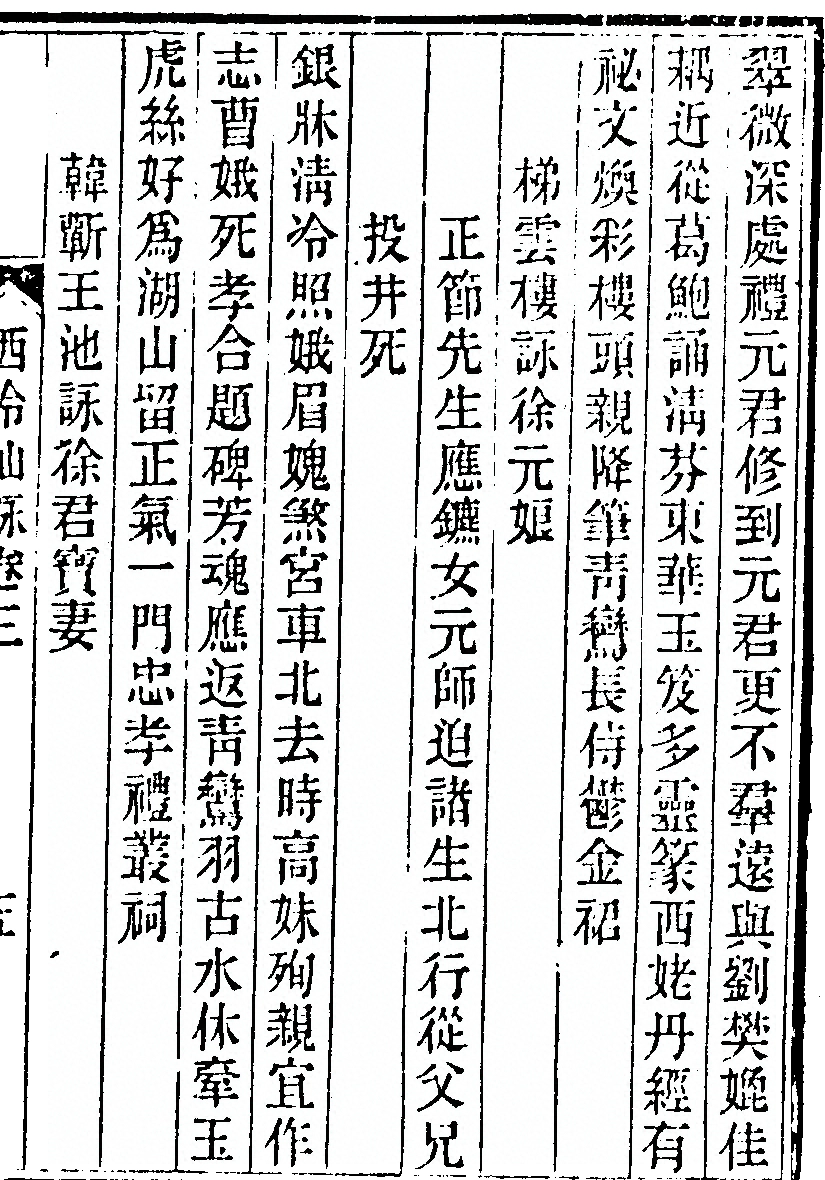 翠微深處禮元君修到元君更不羣遠與劉樊媲佳
耦近從葛鮑誦淸芬東華玉笈多靈篆西姥丹經有
祕文煥彩樓頭親降筆靑鸞長侍鬱金裙
梯雲樓詠徐元娘
正節先生應鑣女元師迫諸生北行從父兄
投井死
銀牀淸冷照娥眉媿煞宮車北去時高妹殉親宜作
志曹娥死孝合題碑芳魂應返靑鸞羽古水休牽玉
虎絲好爲湖山留正氣一門忠孝禮叢祠
韓蘄王池詠徐君寶妻
西泠仙詠卷三
五